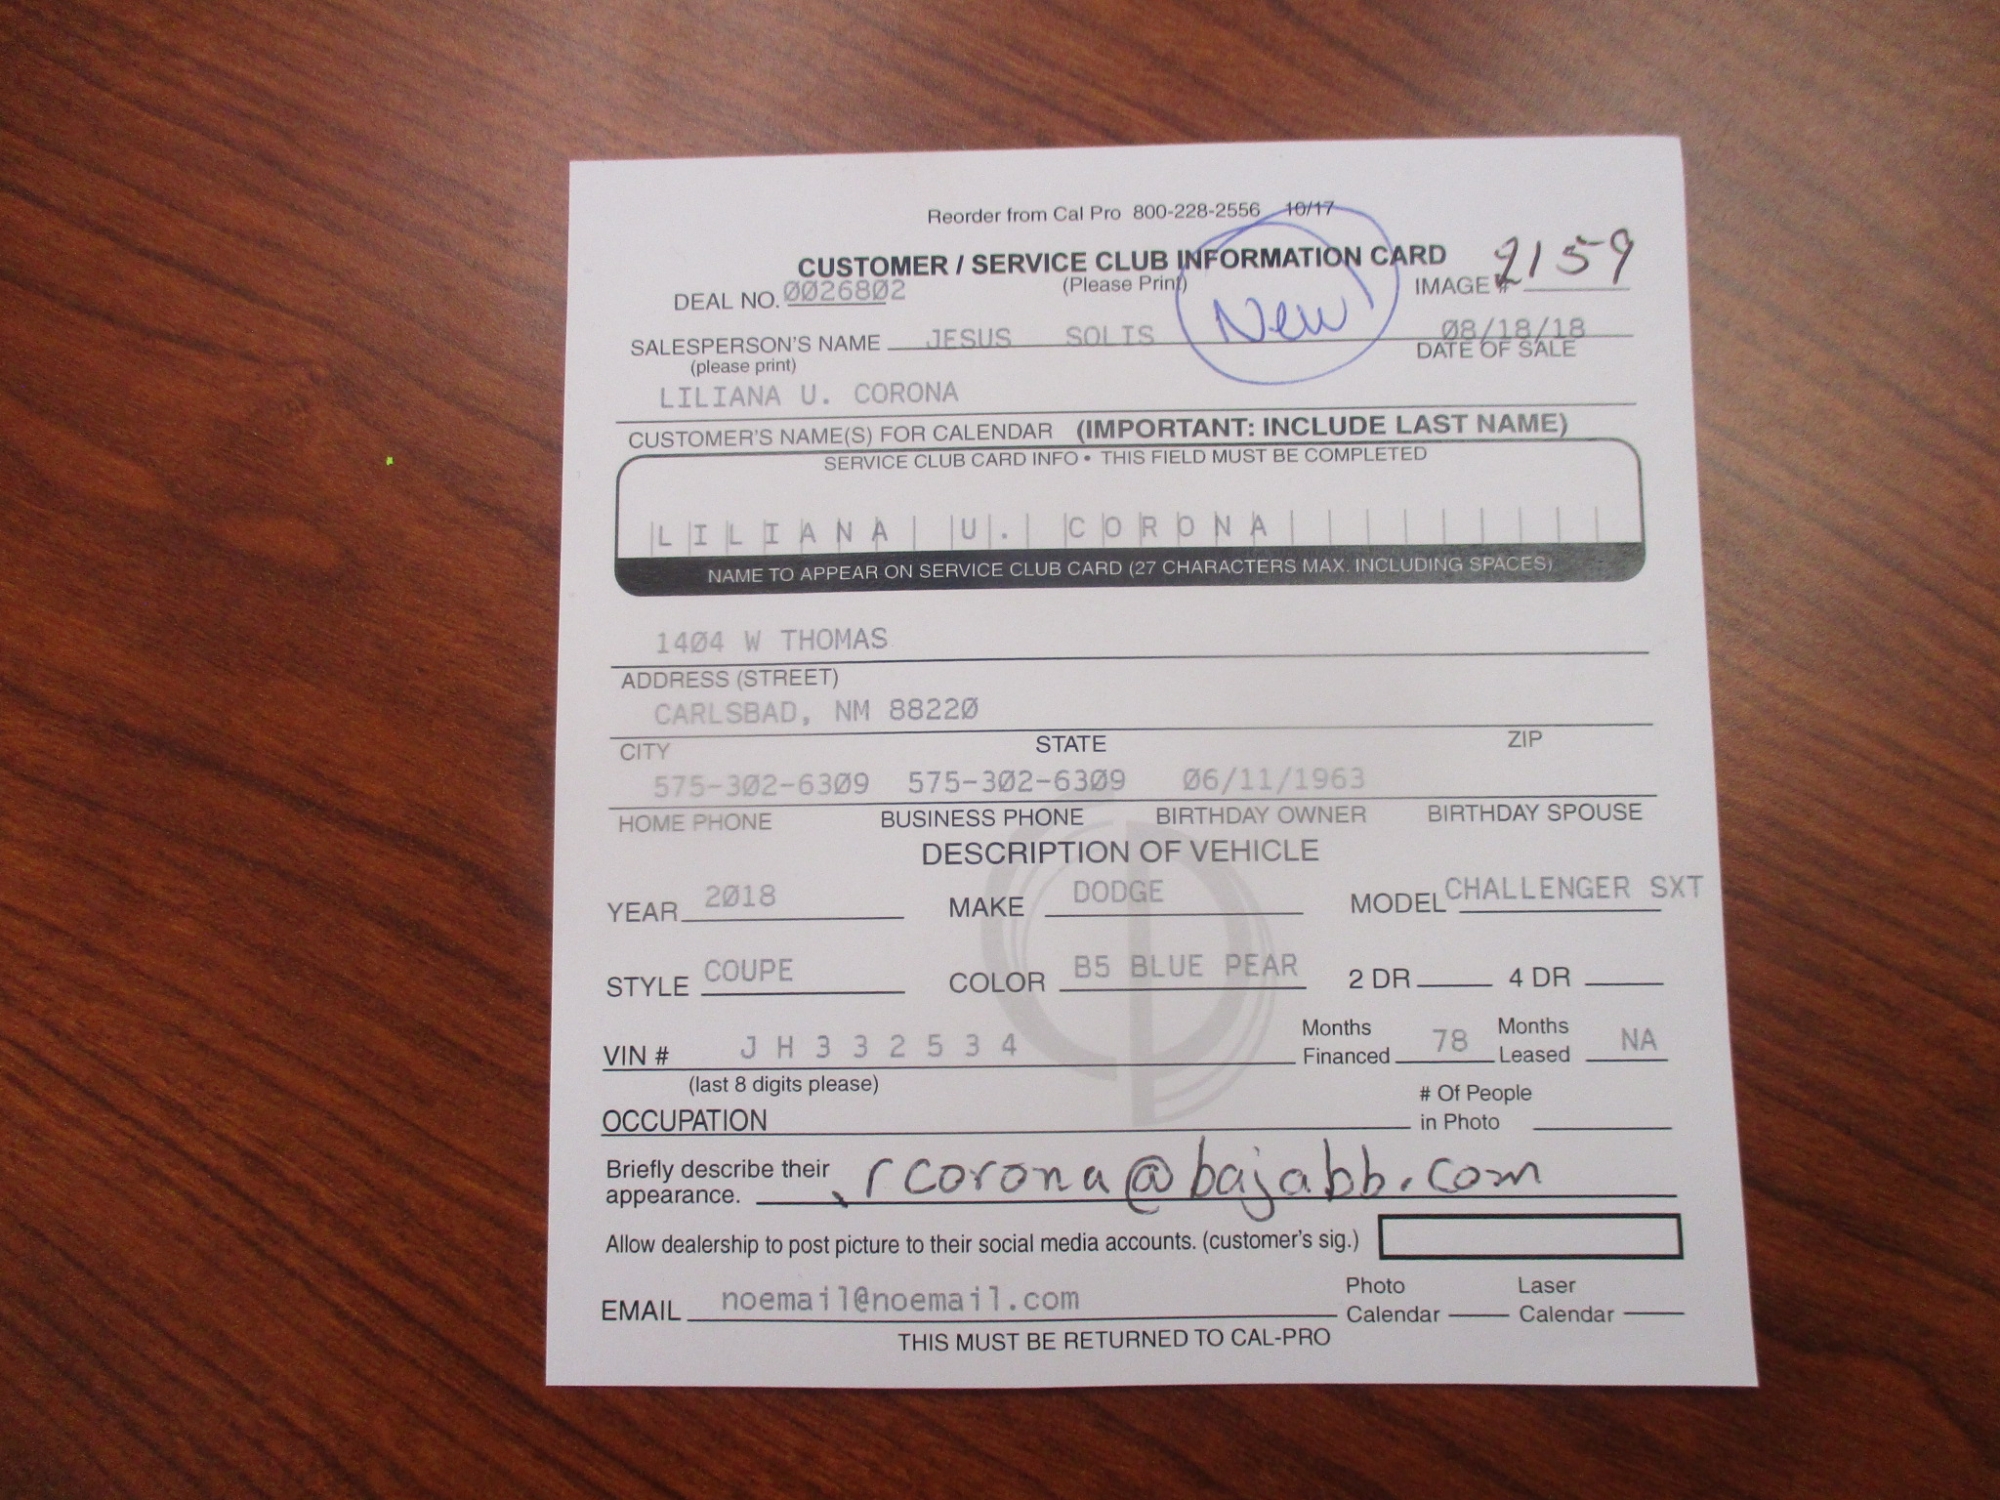 Reorder from Cal Pro 800-228-2556 10/17
CUSTOMER / SERVICE CLUB INFORMATION CARD
(Please Print)
New
DEAL NO. 0026802
IMAGE # 2159
SALESPERSON'S NAME JESUS SOLIS 08/18/18
(please print) DATE OF SALE
LILIANA U. CORONA
CUSTOMER'S NAME(S) FOR CALENDAR (IMPORTANT: INCLUDE LAST NAME)
SERVICE CLUB CARD INFO • THIS FIELD MUST BE COMPLETED
LILIANA U. CORONA
NAME TO APPEAR ON SERVICE CLUB CARD (27 CHARACTERS MAX. INCLUDING SPACES)
1404 W THOMAS
ADDRESS (STREET)
CARLSBAD, NM 88220
CITY STATE ZIP
575-302-6309 575-302-6309 06/11/1963
HOME PHONE BUSINESS PHONE BIRTHDAY OWNER BIRTHDAY SPOUSE
DESCRIPTION OF VEHICLE
YEAR 2018 MAKE DODGE MODEL CHALLENGER SXT
STYLE COUPE COLOR B5 BLUE PEAR 2 DR 4 DR
VIN # J H 3 3 2 5 3 4 Months Financed 78 Months Leased NA
(last 8 digits please)
OCCUPATION # Of People in Photo
Briefly describe their appearance. rcorona@bajabb.com
Allow dealership to post picture to their social media accounts. (customer's sig.)
EMAIL noemail@noemail.com Photo Calendar Laser Calendar
THIS MUST BE RETURNED TO CAL-PRO